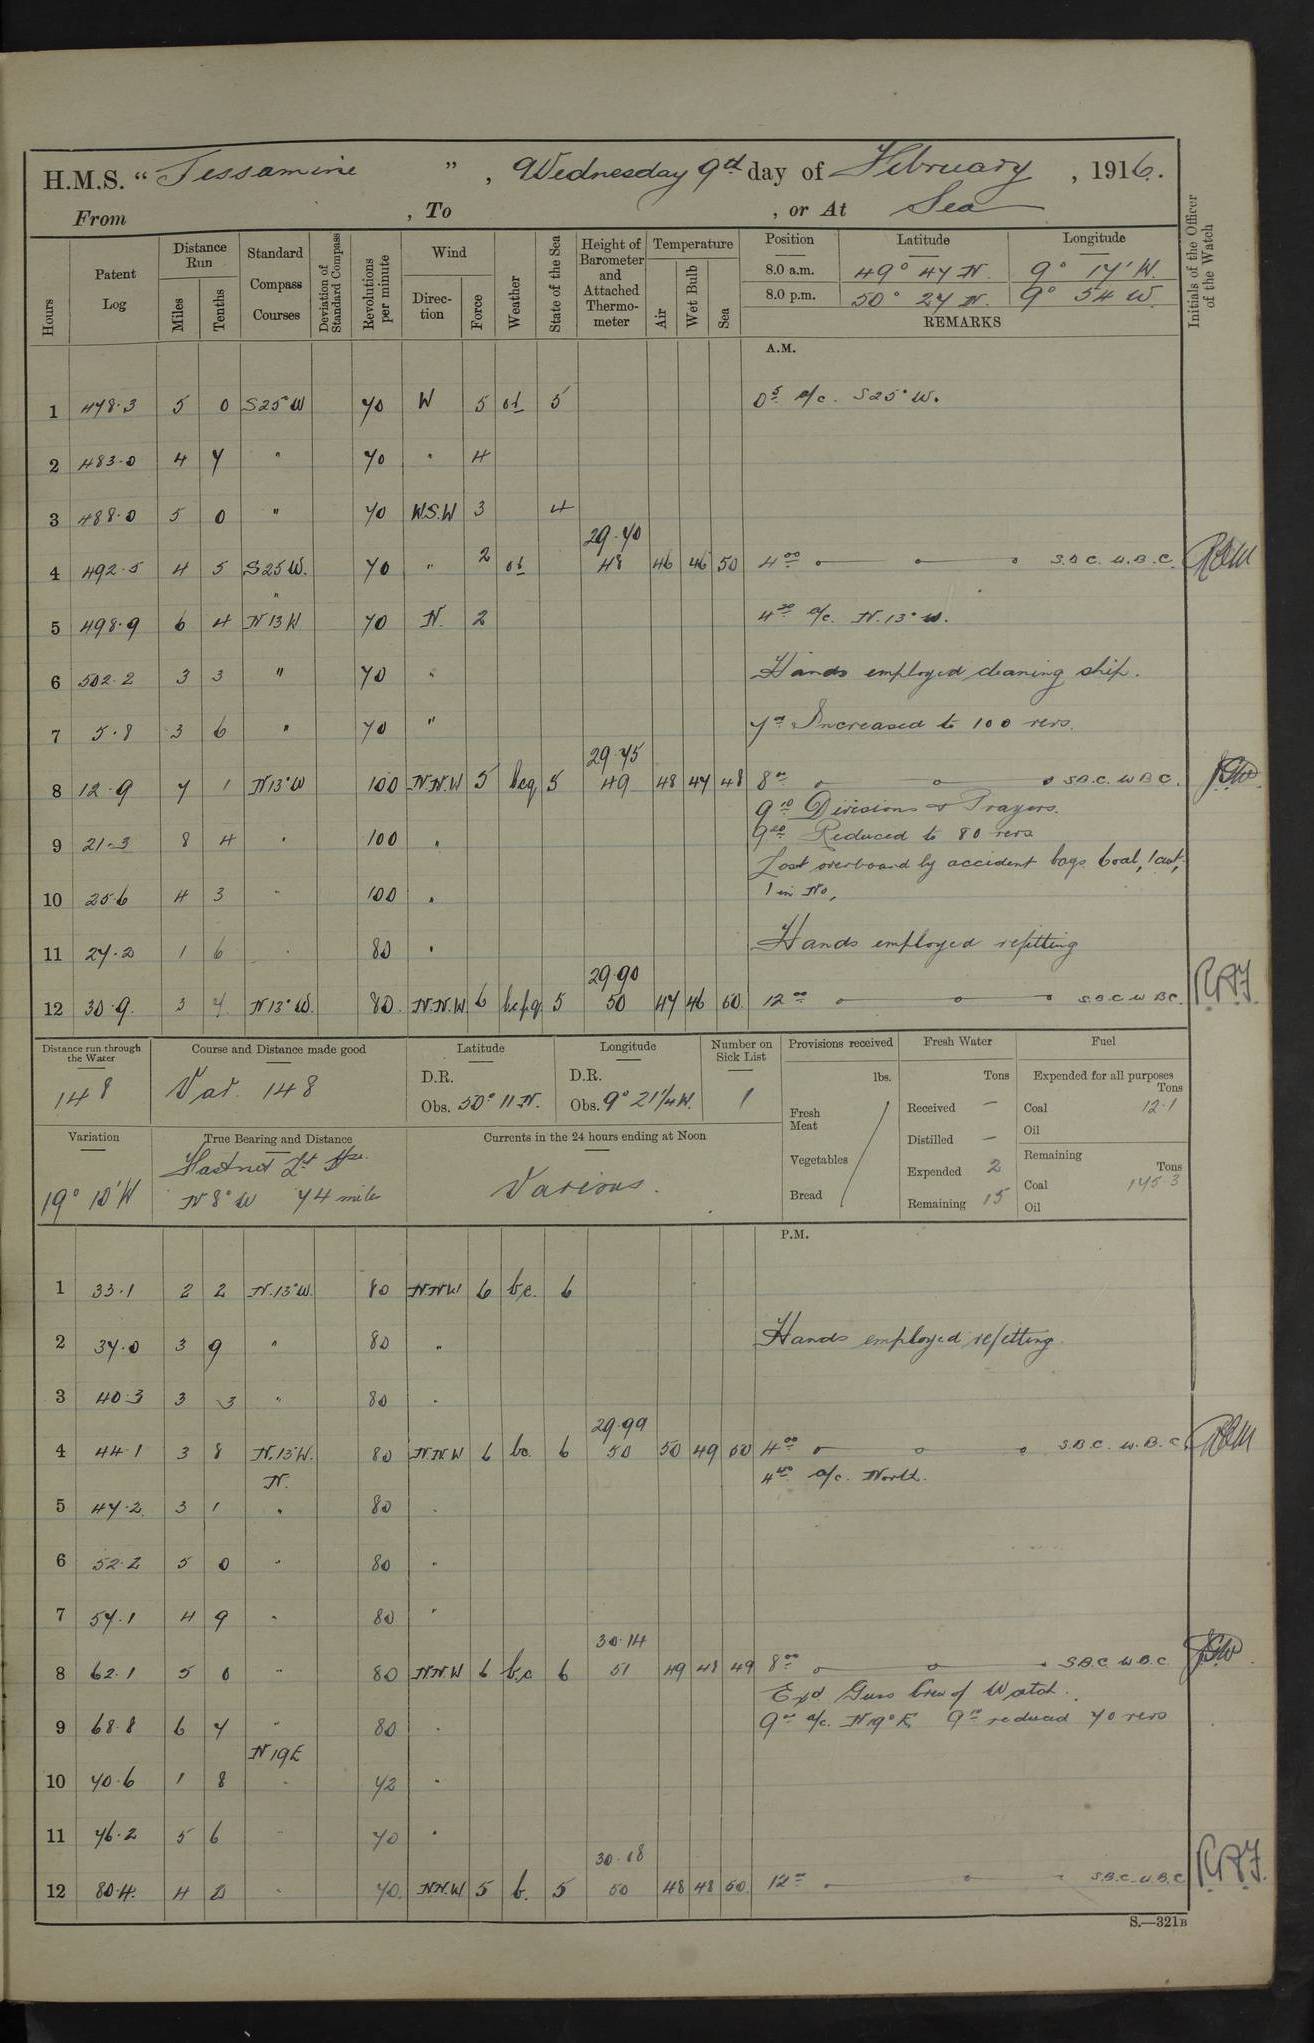 H.M.S. “Jessamine”, Wednesday 9th day of February, 1916.
From , To , or At Sea
Hours
Patent Log
Distance Run
Miles
Tenths
Standard Compass Courses
Deviation of Standard Compass
Revolutions per minute
Wind
Direc-tion
Force
Weather
State of the Sea
Height of Barometer and Attached Thermo-meter
Temperature
Air
Wet Bulb
Sea
Position Latitude Longitude
8.0 a.m. 49° 47 N. 9° 17' W.
8.0 p.m. 50° 27 N. 9° 54 W.
REMARKS
Initials of the Officer of the Watch
A.M.
1 478.3 5 0 S25°W 70 W 5 od 5 0 5 a/c. S25°W.
2 483.0 4 7 " 70 " 4
3 488.0 5 0 " 70 W.S.W 3 4
29.70
4 492.5 4 5 S25W. 70 " 2 od 48 46 46 50 4 00 S.B.C. W.B.C.
"
5 498.9 6 4 N13W 70 N. 2 4 20 a/c. N.13°W.
6 502.2 3 3 " 70 " Hands employed cleaning ship.
7 5.8 3 6 " 70 " 7 00 Increased to 100 revs.
29.75
8 12.9 7 1 N13°W 100 N.N.W 5 bcq 5 49 48 47 48 8 00 S.B.C. W.B.C.
9 10 Divisions & Prayers.
9 21.3 8 4 " 100 " 9 20 Reduced to 80 revs
Lost overboard by accident bags coal, 1 cwt,
10 25.6 4 3 " 100 " 1 in No,
11 27.2 1 6 " 80 " Hands employed refitting
29.90
12 30.9 3 7 N13°W. 80 N.N.W 6 bcpq 5 50 47 46 50 12 00 S.B.C. W.B.C.
Distance run through the Water
148
Course and Distance made good
Var. 148
Latitude
D.R.
Obs. 50° 11 N.
Longitude
D.R.
Obs. 9° 21¼ W.
Number on Sick List
1
Provisions received
lbs.
Fresh Meat
Vegetables
Bread
Fresh Water
Tons
Received —
Distilled —
Expended 2
Remaining 15
Fuel
Expended for all purposes
Tons
Coal 12.1
Oil
Remaining
Tons
Coal 175.3
Oil
Variation
19° 10' W
True Bearing and Distance
Fastnet Lt Hse.
N 8° W 74 miles
Currents in the 24 hours ending at Noon
Various.
P.M.
1 33.1 2 2 N.13°W. 80 N.N.W 6 b.c. 6
2 37.0 3 9 " 80 " Hands employed refitting
3 40.3 3 3 " 80 "
29.99
4 44.1 3 8 N.13°W. 80 N.N.W 6 bc. 6 50 50 49 50 4 00 S.B.C. W.B.C.
N. a/c. North.
5 47.2 3 1 " 80 "
6 52.2 5 0 " 80 "
7 57.1 4 9 " 80 "
30.14
8 62.1 5 0 " 80 N.N.W 6 b.c 6 51 49 48 49 8 00 S.B.C. W.B.C.
Exd Guns Crew of Watch.
9 68.8 6 7 " 80 " 9 00 a/c. N19°E 9 10 reduced 70 revs
N19E
10 70.6 1 8 " 72 "
11 76.2 5 6 " 70 "
30.18
12 80.4 4 2 " 70 N.N.W 5 b. 5 50 48 48 50 12 00 S.B.C. W.B.C.
S.—321B